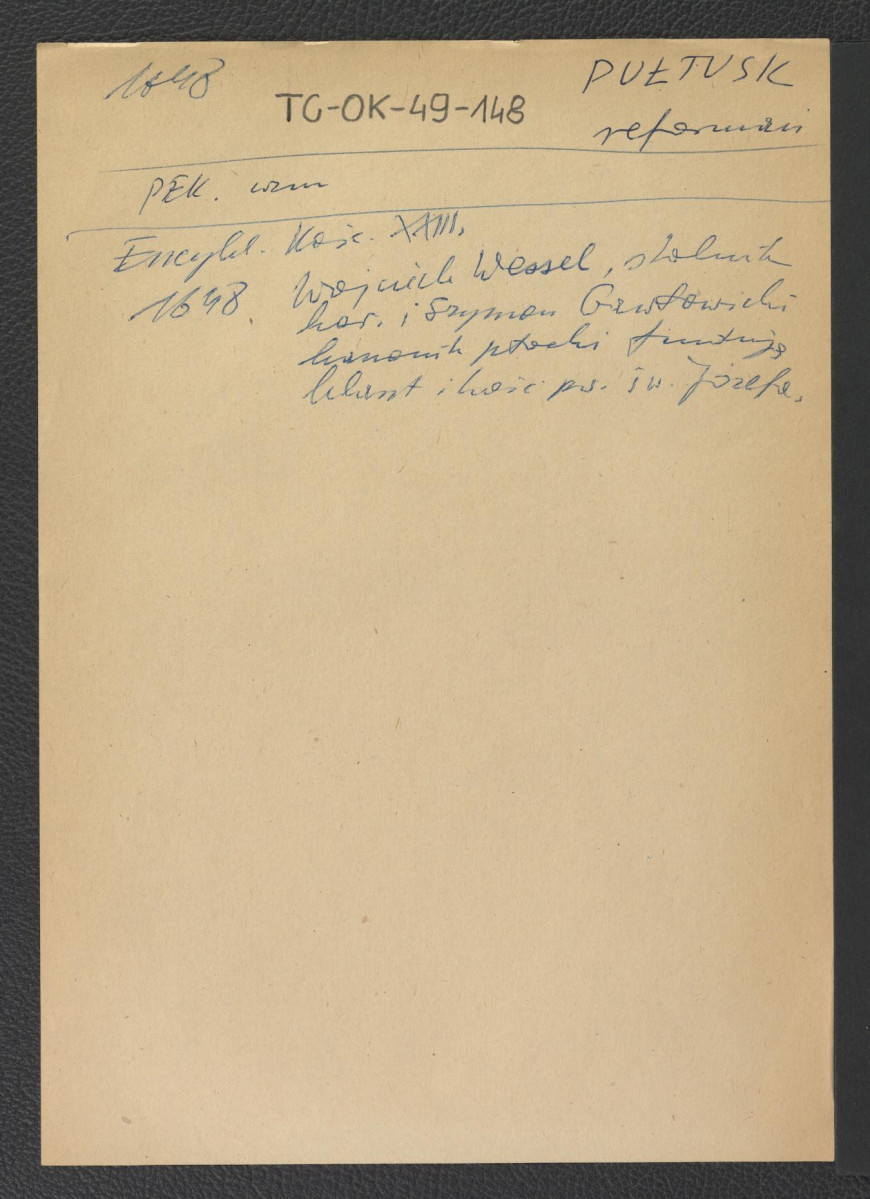 1648
TG-OK-49-148
PUŁTUSK
reformaci
PEK. wzm
Encykl. Kośc. XXIII.
1648. Wojciech Wessel, stolnik
kor. i Szymon
kanonik płocki fundują
klaszt i kośc. pw. św. Józefa.